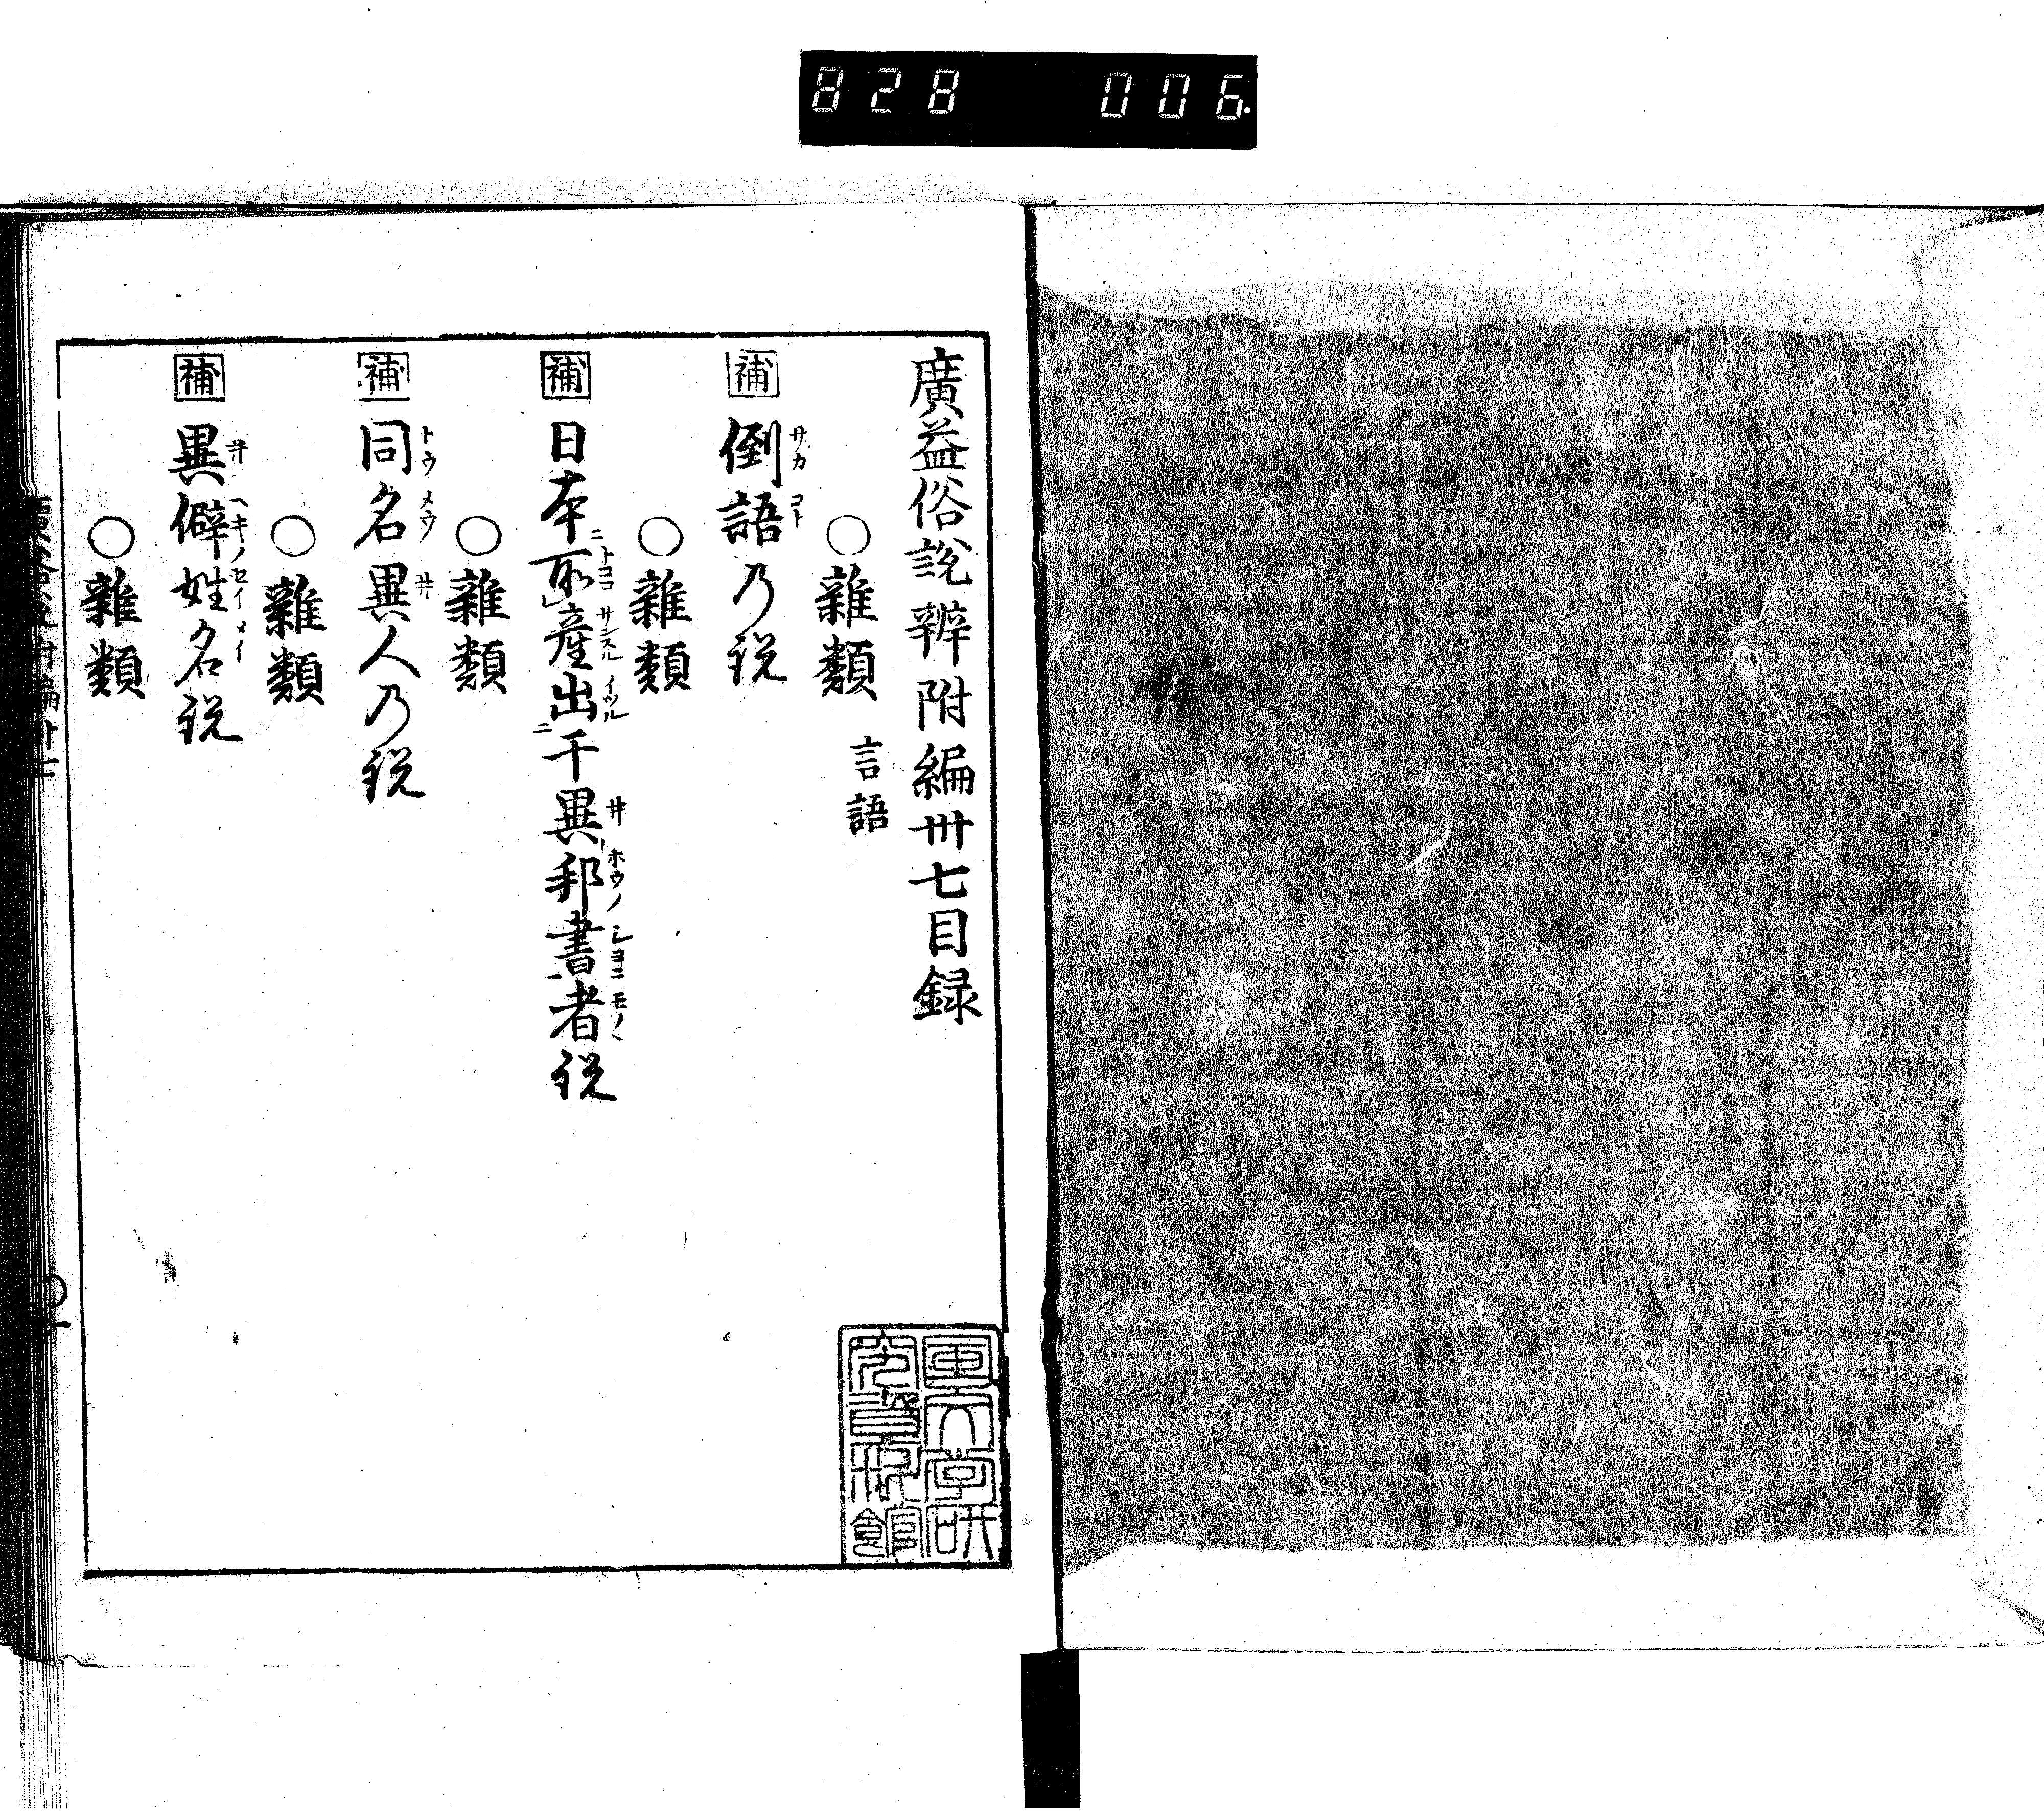 828 006
廣益俗說辨附編卅七目録
○雜類 言語
補 倒語乃説
○雜類
補 日本所產出于異邦書者説
○雜類
補 同名異人乃説
○雜類
補 異僻姓名説
○雜類
國文学研
究資料館